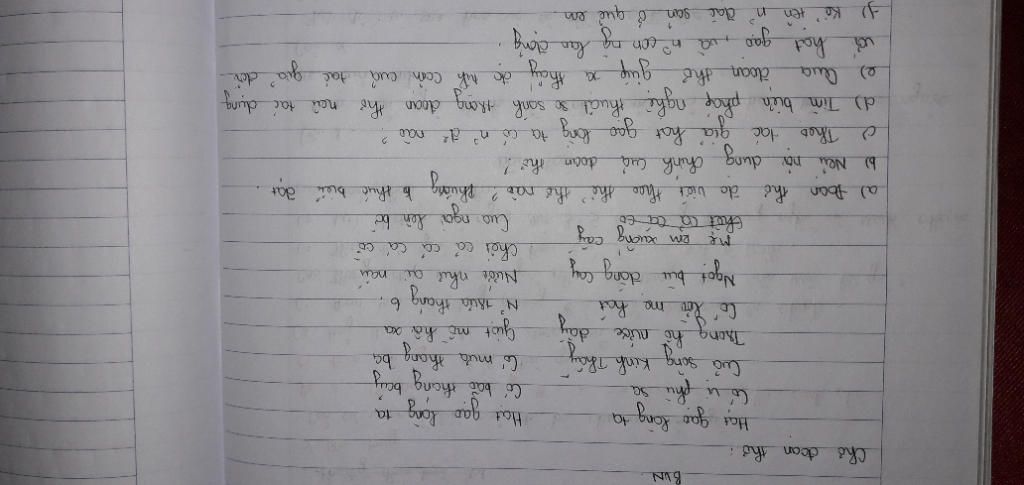 BVN
Cho đoạn thơ:
Hạt gạo làng ta Hạt gạo làng ta
Có vị phù sa Có bão tháng bảy
Của sông Kinh Thầy Có mưa tháng ba
Trong hồ nước đầy Giọt mồ hôi sa
Có lời mẹ hát N~ trưa tháng 6
Ngọt bùi đắng cay Nước như ai nấu
Chết cả cá cờ
Mẹ em xuống cấy Cua ngoi lên bờ
a) Đoạn thơ đc viết theo thể thơ nào? Phương t thức biểu đạt.
b) Nêu nội dung chính của đoạn thơ?
c) Theo tác giả hạt gạo làng ta có n~ gì nào?
d) Tìm biện pháp nghệ thuật so sánh trong đoạn thơ nêu tác dụng
e) Qua đoạn thơ giúp ta thấy đc tình cảm của tác giả đối
với hạt gạo, và n~ con ng lao động.
f) Kể tên n~ đặc sản ở quê em